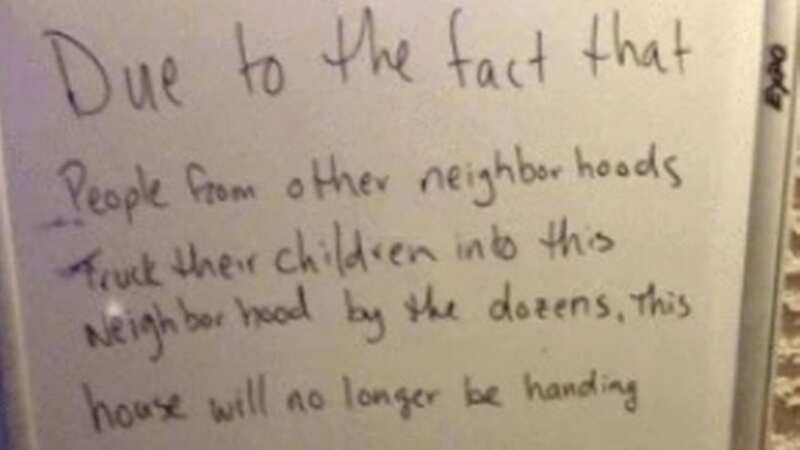 Due to the fact that
People from other neighborhoods
Truck their children into this
Neighborhood by the dozens, This
house will no longer be handing
EXPO